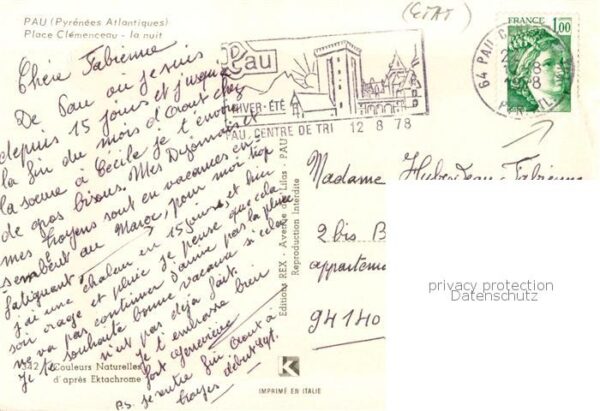 (ETAT)
PAU (Pyrénées Atlantiques)
Place Clémenceau - la nuit
Chère Fabienne
De Pau où je suis
depuis 15 jours et jusqu'à
la fin du mois d'Aout chez
la soeur à Cécile je t'envoie
de gros bisous. Mes
mes troyens sont en vacances en
semble au Maroc, pour moi trop
fatiguant
j'ai une chaleur en 15 jours, et hier
soir orage et pluie je pense que cela
ne va pas continuer j'aime pas la pluie
Je te souhaite bonne vacances si cela
n'est pas déjà fait.
Je t'embrasse bien
fort Geneviève
PS. je rentre fin Aout à
troyes début Sept.
342 Couleurs Naturelles
d'après Ektachrome
Editions REX - Avenue des Lilas - PAU
Reproduction Interdite
K
IMPRIMÉ EN ITALIE
Pau
HIVER-ÉTÉ
PAU, CENTRE DE TRI 12 8 78
64 PAU
FRANCE
1,00
Madame Fabienne
2 bis B
apparteme
94140
privacy protection
Datenschutz